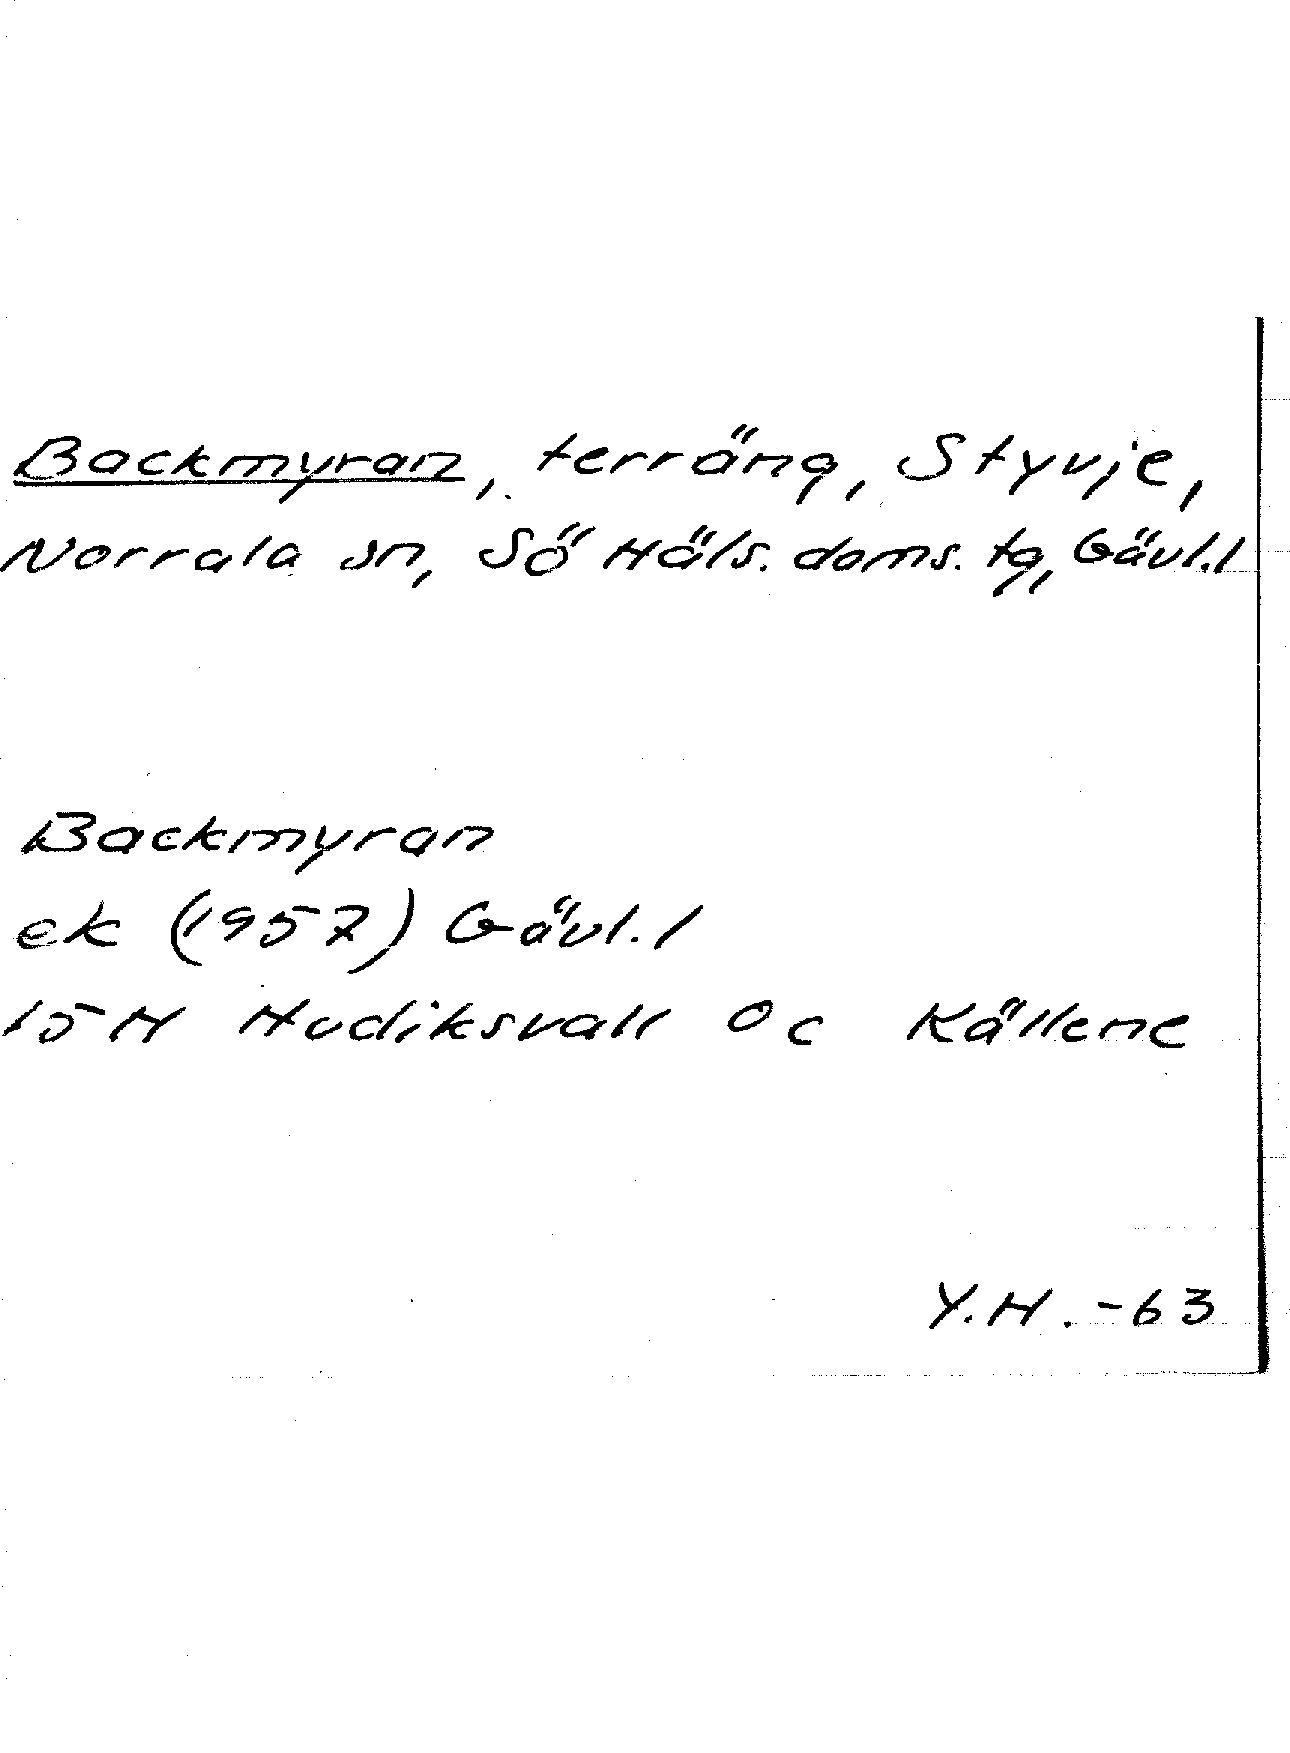 Backmyran, terräng, Styvje,
Norrala sn, Sö Häls. doms. tg, Gävl. l
Backmyran
ek (1957) Gävl. l
15H Hudiksvall 0c Källene
Y.H. -63